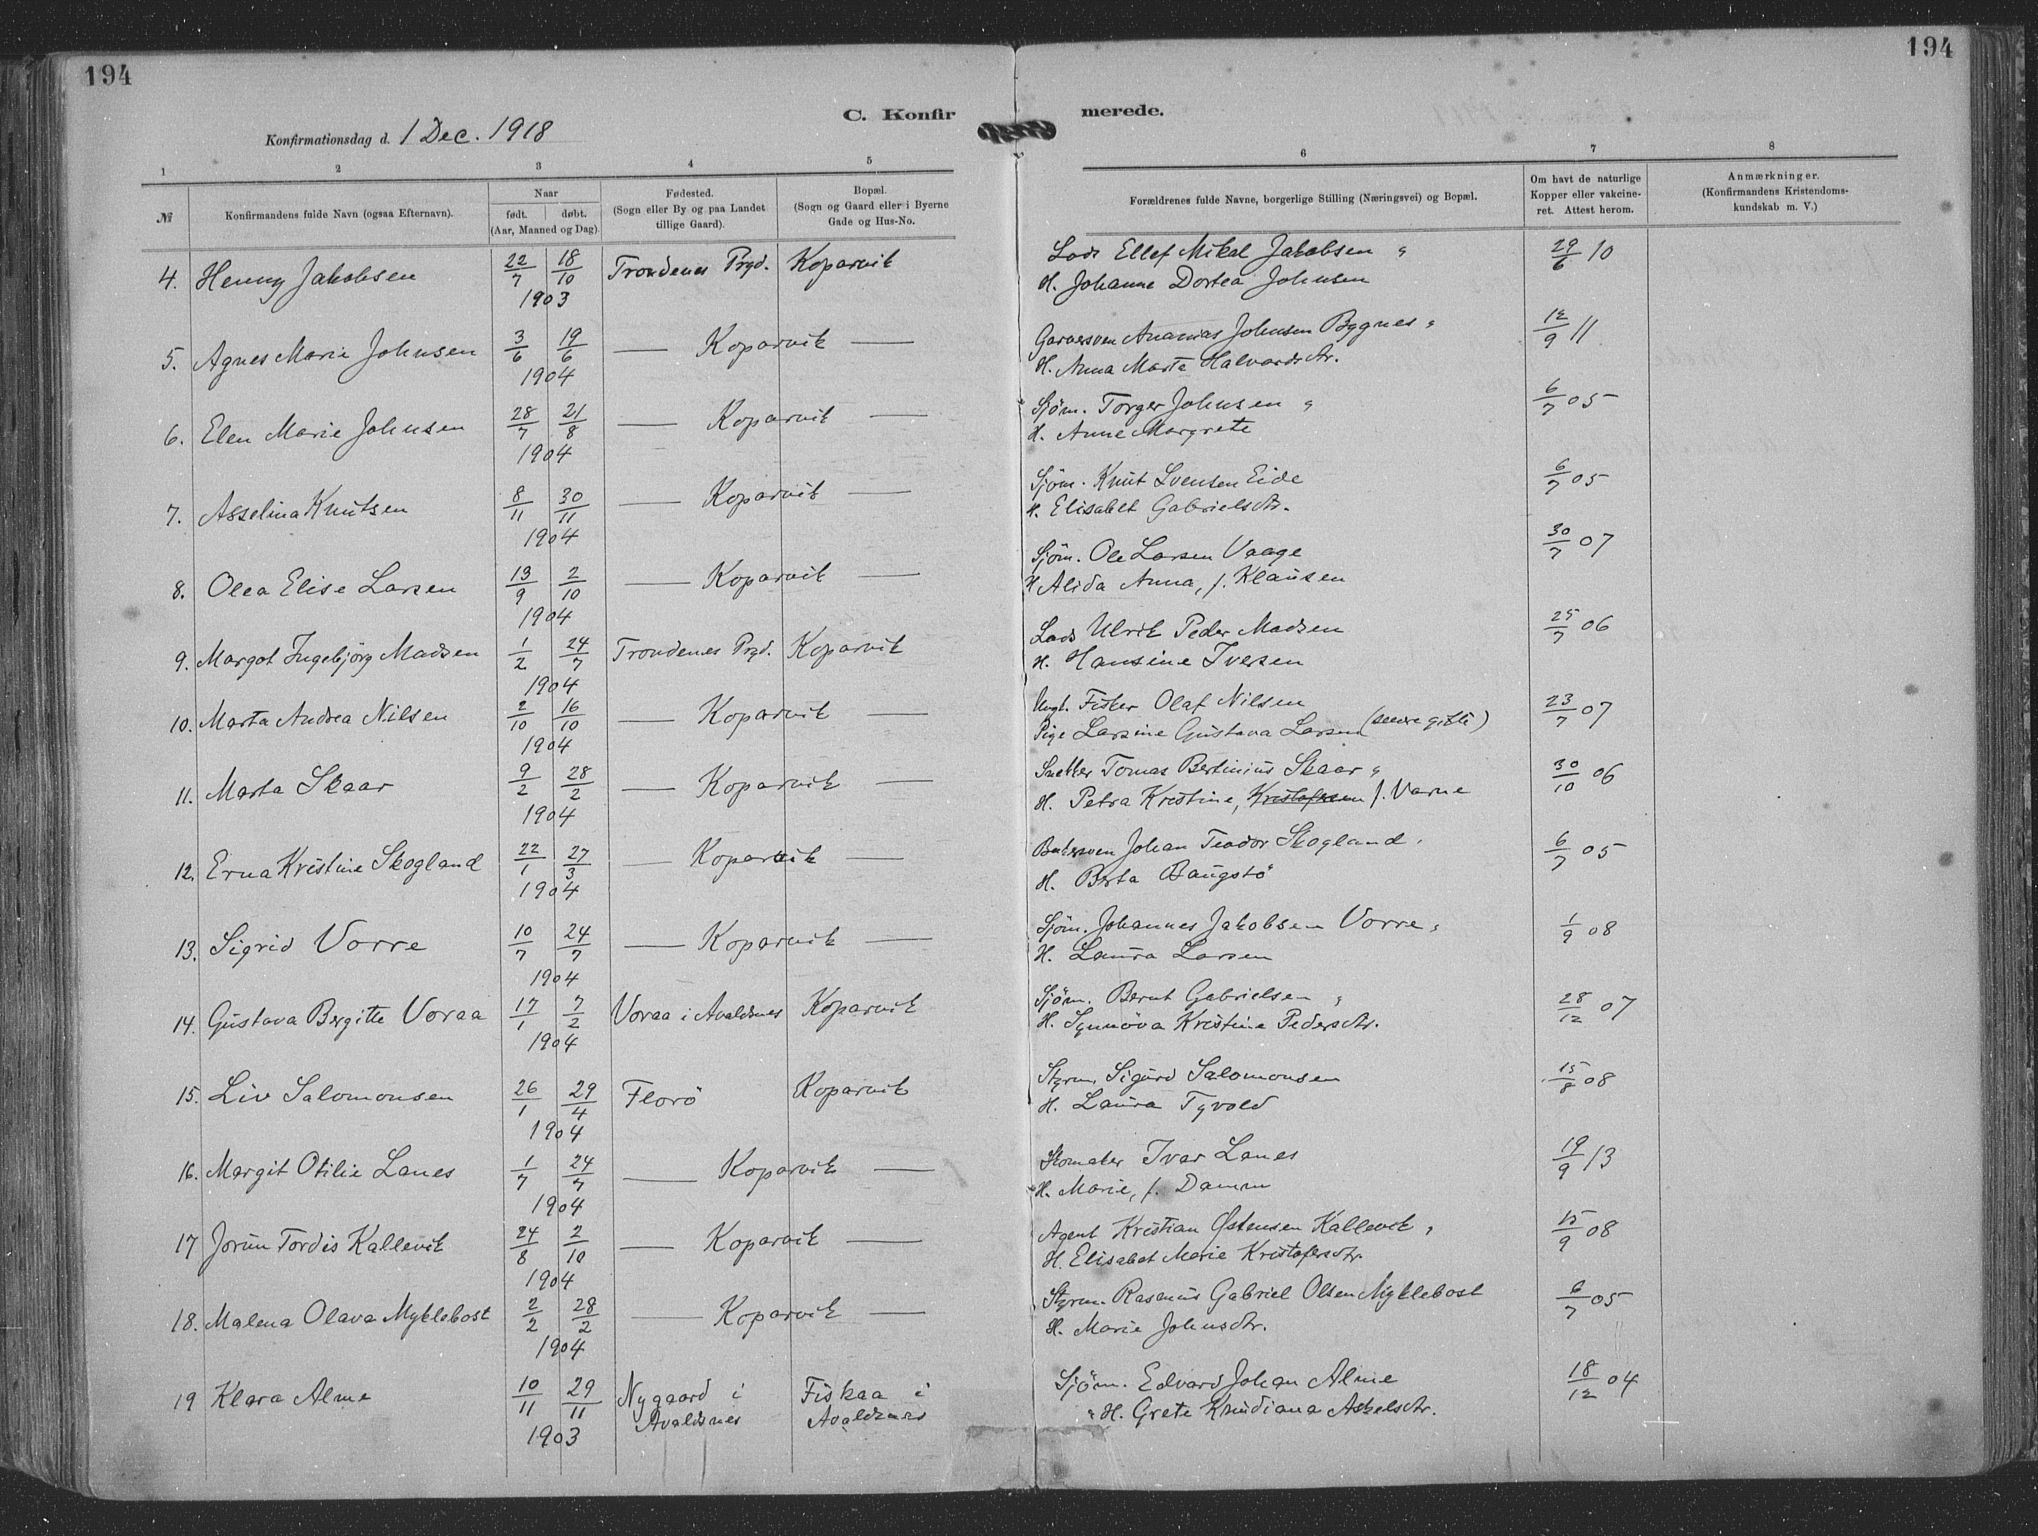 194
194
C. Konfirmerede.
Konfirmationsdag d. 1 Dec. 1918
1 2 3 4 5 6 7 8
№ Konfirmandens fulde Navn (ogsaa Efternavn). Naar født. døbt. (Aar, Maaned og Dag). Fødested. (Sogn eller By og paa Landet tillige Gaard). Bopæl. (Sogn og Gaard eller i Byerne Gade og Hus-No. Forældrenes fulde Navne, borgerlige Stilling (Næringsvei) og Bopæl. Om havt de naturlige Kopper eller vakcineret. Attest herom. Anmærkninger. (Konfirmandens Kristendomskundskab m. V.)
4. Henny Jakobsen 22/7 18/10 Trondenes Prgd. Koparvik Lods Ellef Mikal Jakobsen „ 29/6 10
1903 H. Johanne Dortea Johnsen
5. Agnes Marie Johnsen 3/6 19/6 — Koparvik — Garversven Ananias Johnsen Bygnes „ 12/9 11
1904 H. Anna Marta Halvordsdtr.
6. Elen Marie Johnsen 28/7 21/8 — Koparvik — Sjøm. Torger Johnsen „ 6/7 05
1904 H. Anne Margrete
7. Asselina Knutsen 8/11 30/11 — Koparvik — Sjøm. Knut Svensen Eide 6/7 05
1904 H. Elisabet Gabrielsdtr.
8. Olea Elise Larsen 13/9 2/10 — Koparvik — Sjøm. Ole Larsen Vaage 30/7 07
1904 H. Alida Anna, f. Klausen
9. Margot Ingebjörg Madsen 1/2 24/7 Trondenes Prgd. Koparvik Lods Ulrik Peder Madsen 25/7 06
1904 H. Hansine Iversen
10. Marta Andrea Nilsen 2/10 16/10 — Koparvik — Ungk. Fisker Olaf Nilsen 23/7 07
1904 Pige Larsine Gustava Larsen (senere gifte)
11. Marta Skaar 9/2 28/2 — Koparvik — Snekker Tomas Bertinius Skaar „ 30/10 06
1904 H. Petra Kristine, Kristofersen f. Varne
12. Erna Kristine Skogland 22/1 27/3 — Koparvik — Johan Teodor Skogland, 6/7 05
1904 H. Berta Baugstö
13. Sigrid Vorre 10/7 24/7 — Koparvik — Sjøm. Johannes Jakobsen Vorre, 1/9 08
1904 H. Laura Larsen
14. Gustava Bergitte Voraa 17/1 7/2 Voraa i Avaldsnes Koparvik Sjøm. Bernt Gabrielsen „ 28/12 07
1904 H. Synnöva Kristine Pedersdtr.
15. Liv Salomonsen 26/1 29/4 Florö Koparvik Styrm. Sigurd Salomonsen 15/8 08
1904 H. Laura Tyvold
16. Margit Otilie Lanes 1/7 24/7 — Koparvik — Skomaker Ivar Lanes 19/9 13
1904 H. Marie, f. Damm
17 Jorun Tordis Kallevik 24/8 2/10 — Koparvik — Agent Kristian Østensen Kallevik, 15/9 08
1904 H. Elisabet Marie Kristofersdtr.
18. Malena Olava Myklebost 2/2 28/2 — Koparvik — Styrm. Rasmus Gabriel Olsen Myklebost 6/7 05
1904 H. Marie Johnsdtr.
19 Klara Alme 10/11 29/11 Nygaard i Avaldsnes Fiskaa i Avaldsnes Sjøm. Edvard Johan Alme 18/12 04
1903 „ H. Grete Knudiana Askelsdtr.